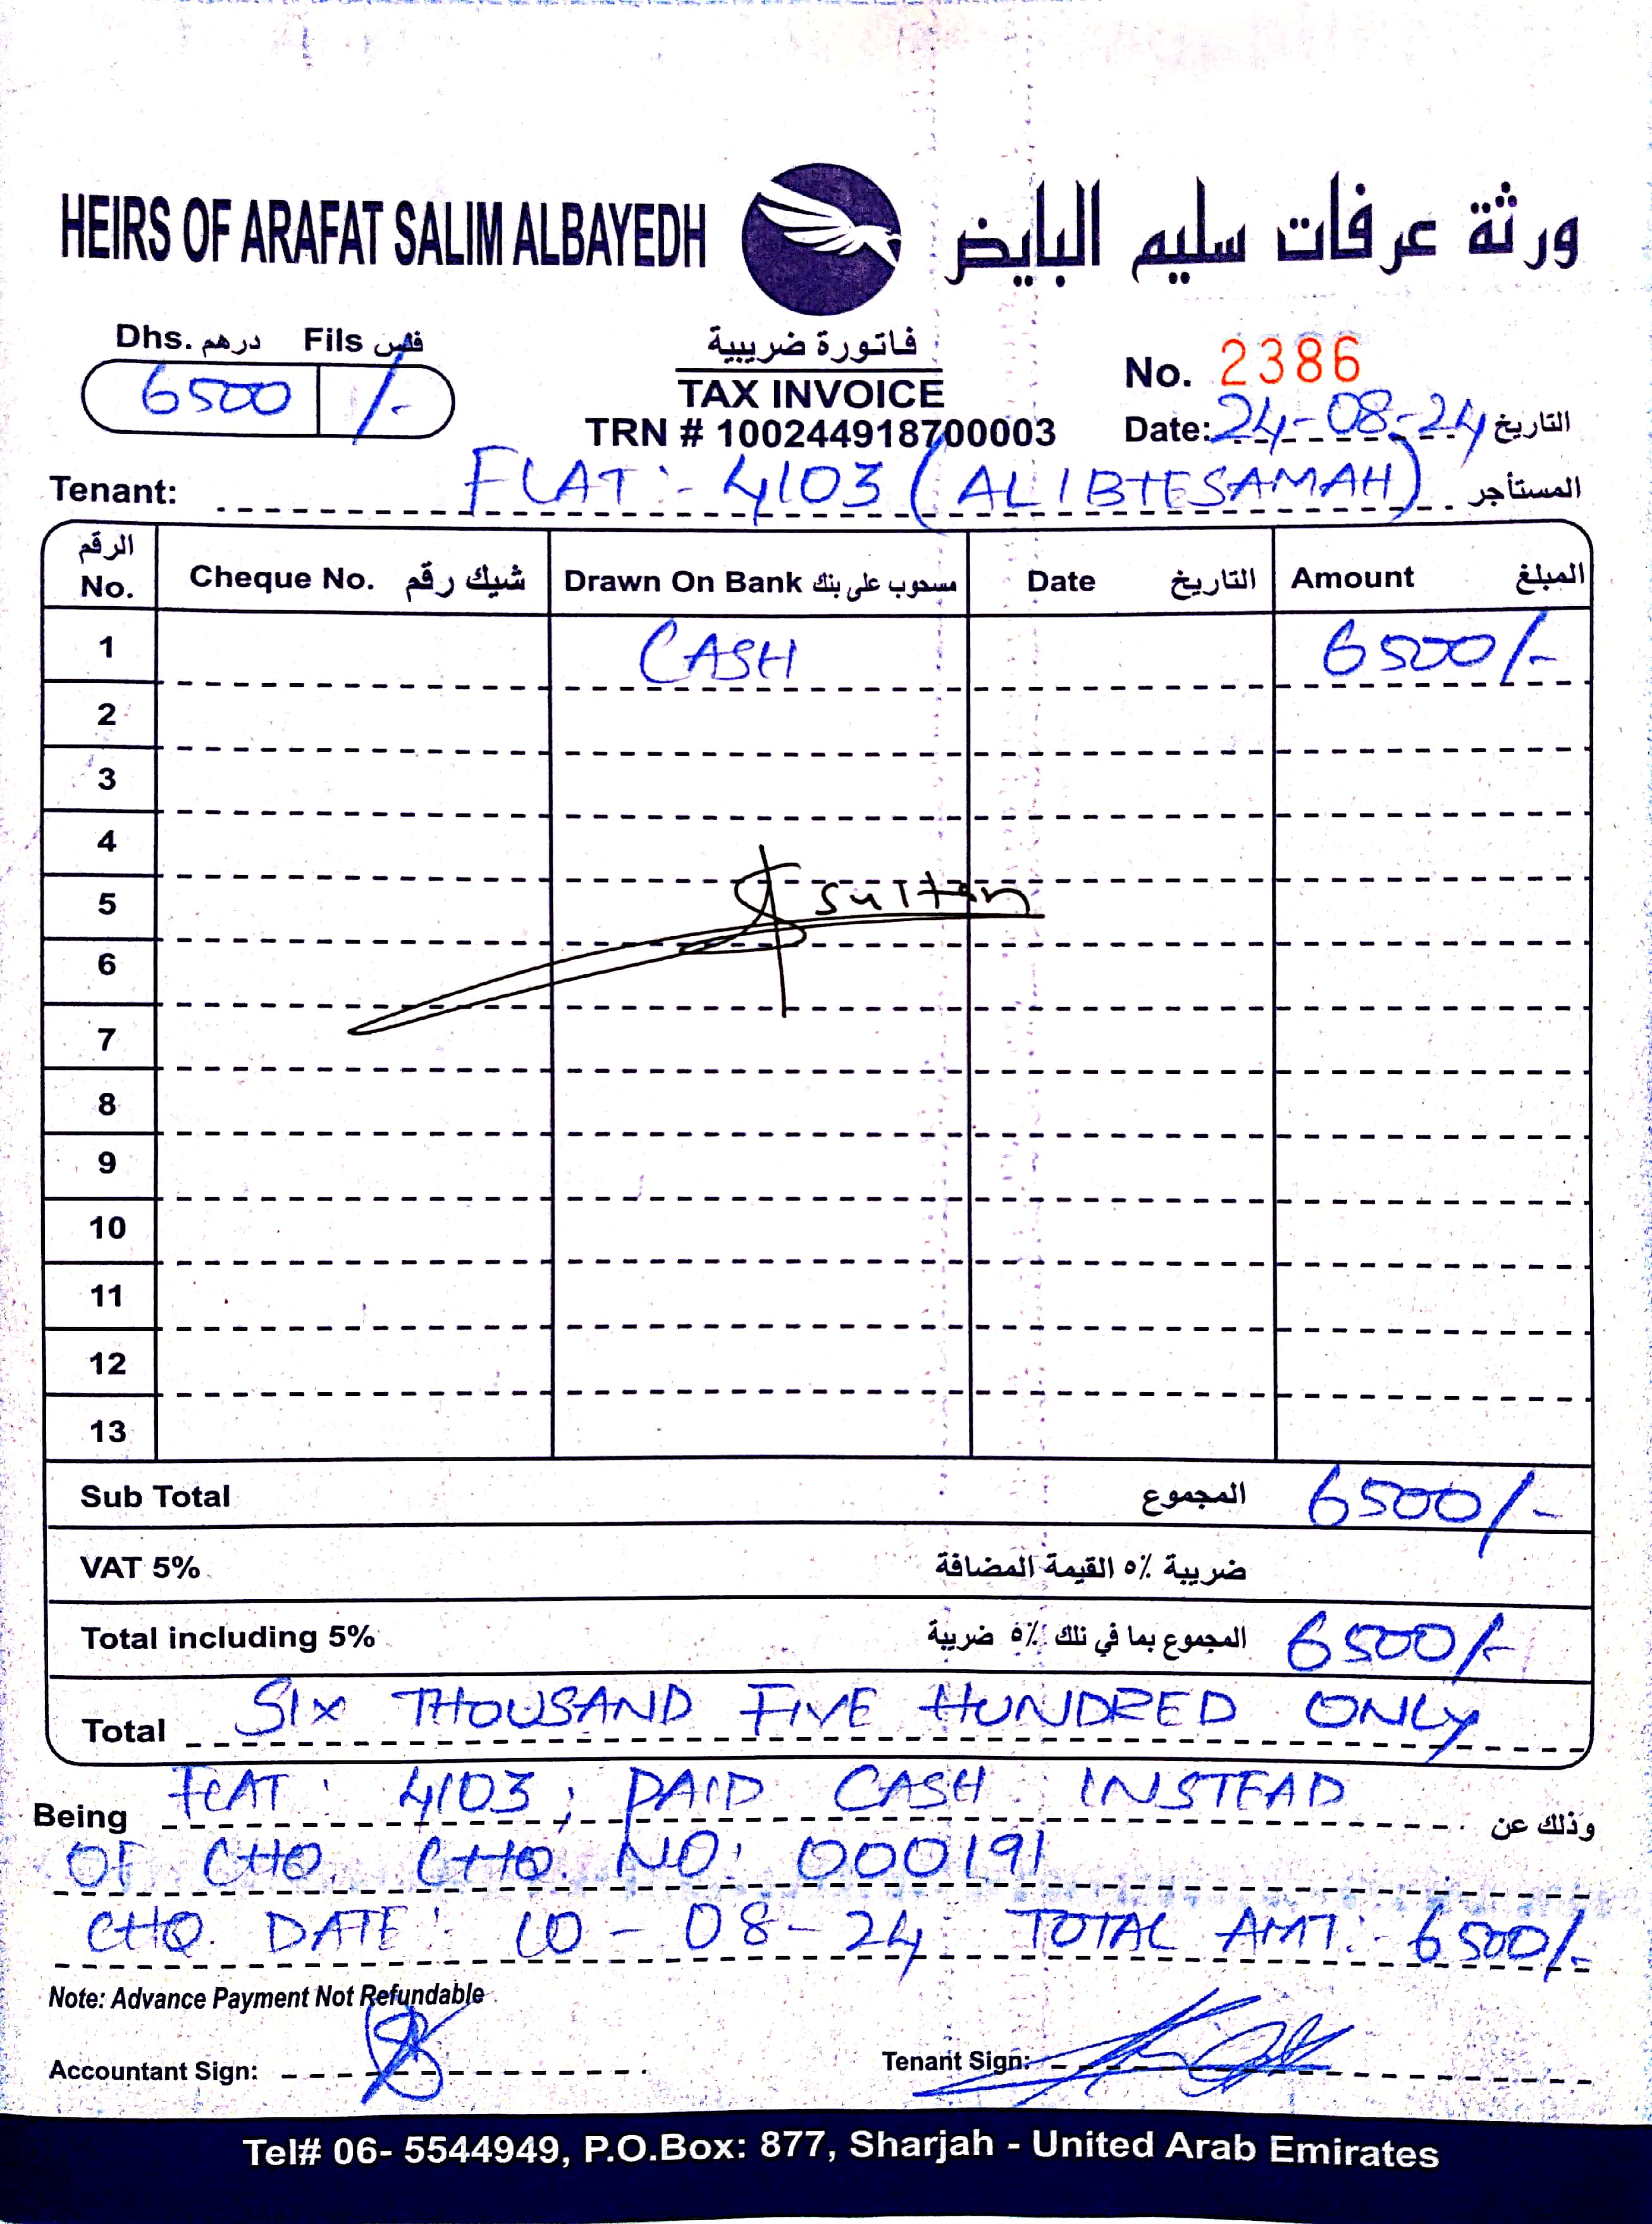 HEIRS OF ARAFAT SALIM ALBAYEDH ورثة عرفات سليم البايض
Dhs. درهم Fils فلس
6500 /-
فاتورة ضريبية
TAX INVOICE
TRN # 100244918700003
No. 2386
Date: 24-08-24 التاريخ
Tenant: FLAT:- 4103 (ALIBTESAMAH) المستأجر
الرقم No. Cheque No. شيك رقم Drawn On Bank مسحوب على بنك Date التاريخ Amount المبلغ
1 CASH 6500/-
2
3
4
5 sultan
6
7
8
9
10
11
12
13
Sub Total المجموع 6500/-
VAT 5% ضريبة ٥٪ القيمة المضافة
Total including 5% المجموع بما في تلك ٥٪ ضريبة 6500/-
Total SIX THOUSAND FIVE HUNDRED ONLY
Being FLAT: 4103, PAID CASH INSTEAD وذلك عن
OF CHQ. CHQ. NO: 000191
CHQ. DATE: 10-08-24 TOTAL AMT:- 6500/-
Note: Advance Payment Not Refundable
Accountant Sign: Tenant Sign:
Tel# 06- 5544949, P.O.Box: 877, Sharjah - United Arab Emirates